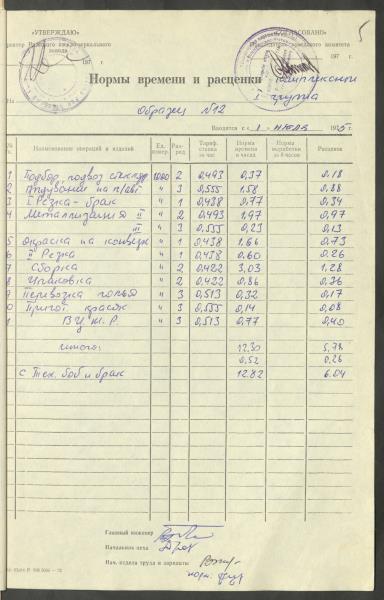 «УТВЕРЖДАЮ»
«СОГЛАСОВАНО»
5
197 г.
197 г.
Нормы времени и расценки
I группа
На
Образец №12
Вводятся с «1» июля 1975 г.
№ п. Наименование операций и изделий Ед. измер. Раз-ряд Тариф. ставка за час Норма времени в часах Норма выработки за 8 часов Расценка
1 Подбор, подвоз 1000 2 0,493 0,37 0,18
2 " 3 0,555 1,58 0,88
3 I Резка - брак " 1 0,438 0,77 0,34
4 Металлизация II " 2 0,493 1,97 0,97
III " 3 0,555 0,23 0,13
5 Окраска на конвейере " 1 0,438 1,66 0,73
6 II Резка " 1 0,438 0,60 0,26
7 Сборка " 2 0,422 3,03 1,28
8 Упаковка " 2 0,422 0,86 0,36
9 Перевозка " 3 0,513 0,32 0,17
0 Пригот. красок " 3 0,555 0,14 0,08
1 " 3 0,513 0,77 0,40
итого: 12.30 5,78
0,52 0,26
с Тех. боб и брак 12.82 6.04
Главный инженер
Начальник цеха
Нач. отдела труда и зарплаты